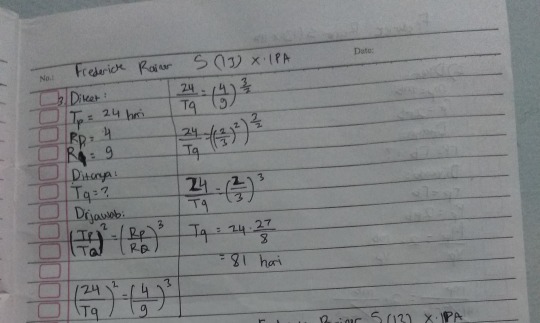 No.: Frederick Rainer S (13) X.IPA Date:
3. Diket:
Tp = 24 hari
Rp = 4
RQ = 9
Ditanya:
Tq = ?
Dijawab:
(Tp/TQ)² = (Rp/RQ)³
(24/Tq)² = (4/9)³
24/Tq = (4/9)^(3/2)
24/Tq = ((2/3)²)^(3/2)
24/Tq = (2/3)³
Tq = 24 . 27/8
= 81 hari
Rainer S (13) X.IPA